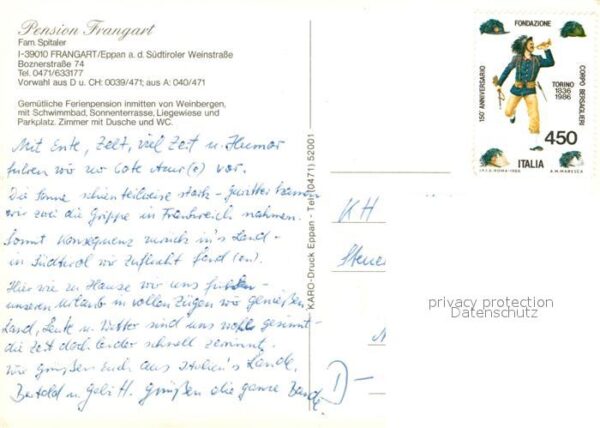 Pension Frangart
Fam. Spitaler
I-39010 FRANGART/Eppan a. d. Südtiroler Weinstraße
Boznerstraße 74
Tel. 0471/633177
Vorwahl aus D u. CH: 0039/471; aus A: 040/471
Gemütliche Ferienpension inmitten von Weinbergen,
mit Schwimmbad, Sonnenterrasse, Liegewiese und
Parkplatz. Zimmer mit Dusche und WC.
Mit Ente, Zelt, viel Zeit u. Humor
fuhren wir zur Cote Azur(e) vor.
Die Sonne schien teilweise stark -
wir zwei die Grippe in Frankreich nahmen.
Somit konsequenz zurück in's Land -
in Südtirol wir Zuflucht fand(en).
Hier wie zu Hause wir uns fühlen -
unseren Urlaub in vollen Zügen wir genießen
Land, Leute u. Wetter sind uns wohl gesinnt -
die Zeit doch leider schnell zerrinnt.
Wir grüßen Euch aus Italien's Lande,
Bertold u. Gabi H. grüßen die ganze Bande.
KARO-Druck Eppan - Tel. (0471) 52001
FONDAZIONE
150° ANNIVERSARIO
CORPO BERSAGLIERI
TORINO
1836
1986
450
ITALIA
I.P.Z.S. ROMA-1986
A.M. MARESCA
KH
Steuer
D-
privacy protection
Datenschutz